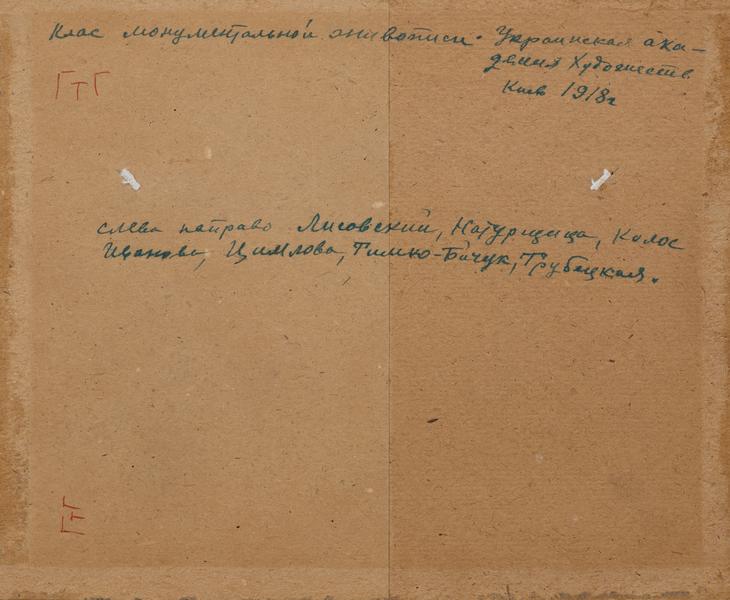 Клас монументальной живописи. Украинская ака-
демия Художеств
Киев 1918г
ГТГ
слева направо Лисовский, Натурщица, Колос
Иванова, Цимлова, Тимко-Бичук, Трубецкая.
ГТГ